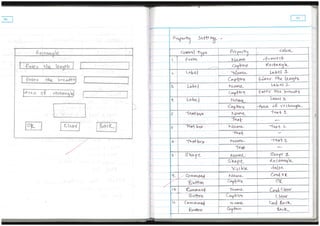 Rectangle
Enter the length
Enter the breadth
Area of rectangle
OK
Clear
Back
Property Setting
Control Type Property Value
1 Form Name
Caption Rectangle
2 Label Name Label 1
Caption Enter the length
3 Label Name Label 2
Caption Enter the breadth
4 Label Name Label 3
Caption Area of rectangle
5 Textbox Name Text 1
Text —
6 Textbox Name Text 2
Text —
7 Textbox Name Text 3
Text —
8 Shape Name Shape 1
Shape Rectangle
Visible False
9 Command Name Cmd OK
Button Caption OK
10 Command Name Cmd Clear
Button Caption Clear
11 Command Name Cmd Back
Button Caption Back